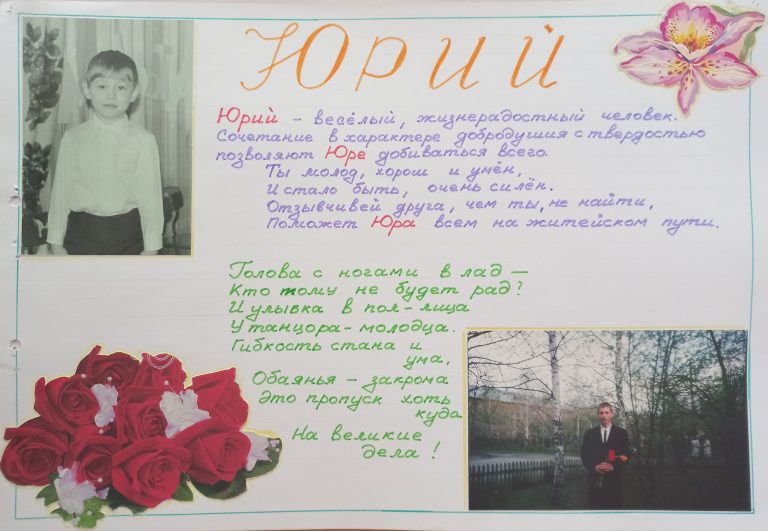 Юрий
Юрий - весёлый, жизнерадостный человек.
Сочетание в характере добродушия с твердостью
позволяют Юре добиваться всего.
Ты молод, хорош и умён,
И стало быть, очень силён.
Отзывчивей друга, чем ты, не найти,
Поможет Юра всем на житейском пути.
Голова с ногами в лад —
Кто тому не будет рад?
И улыбка в пол-лица
У танцора - молодца.
Гибкость стана и
ума,
Обаянья - закрома
Это пропуск хоть
куда
На великие
дела!